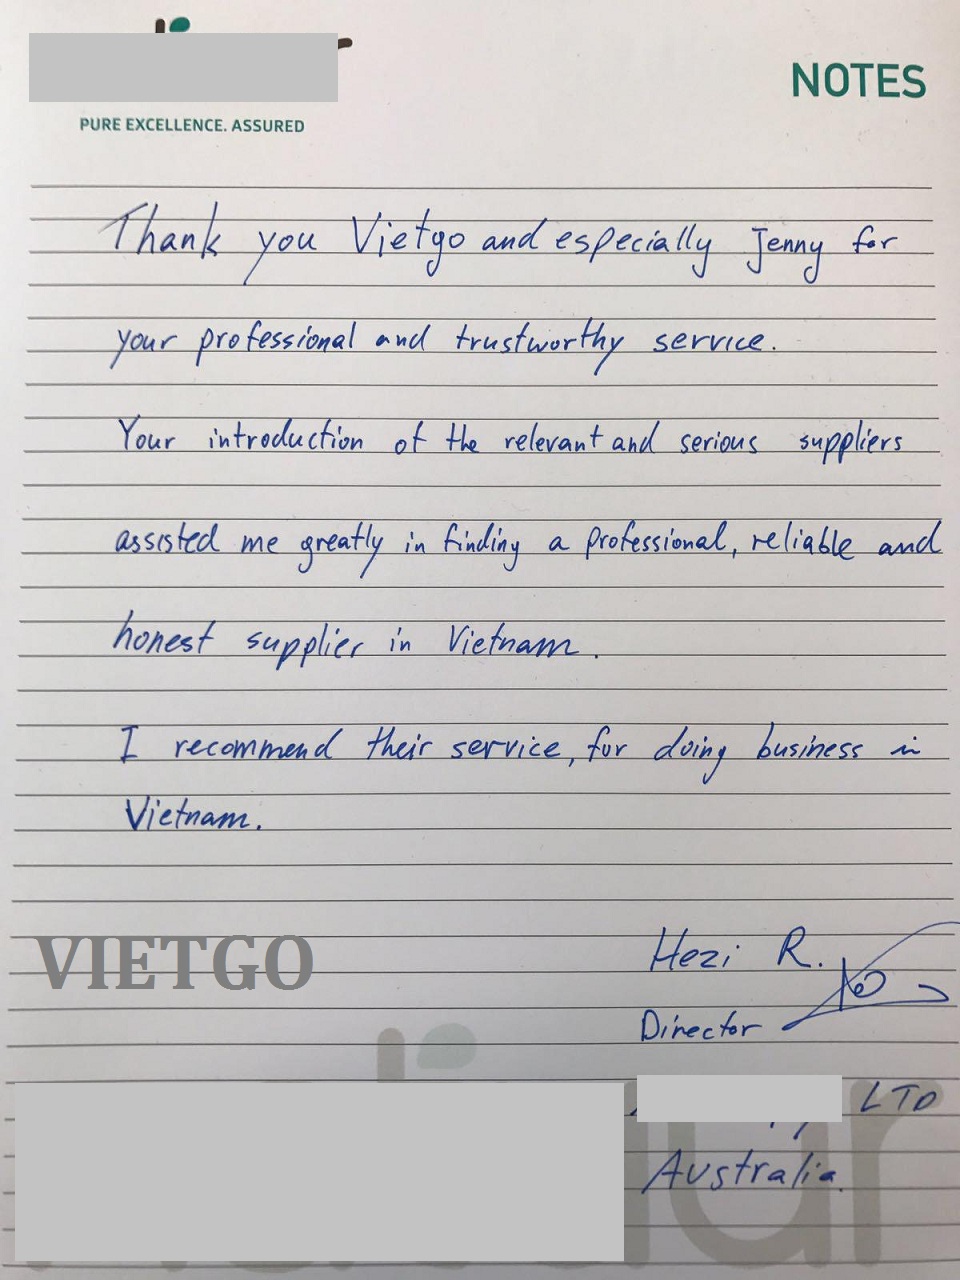 NOTES
PURE EXCELLENCE. ASSURED
Thank you Vietgo and especially Jenny for
your professional and trustworthy service.
Your introduction of the relevant and serious suppliers
assisted me greatly in finding a professional, reliable and
honest supplier in Vietnam.
I recommend their service, for doing business in
Vietnam.
VIETGO
Hezi R.
Director
LTD
Australia.